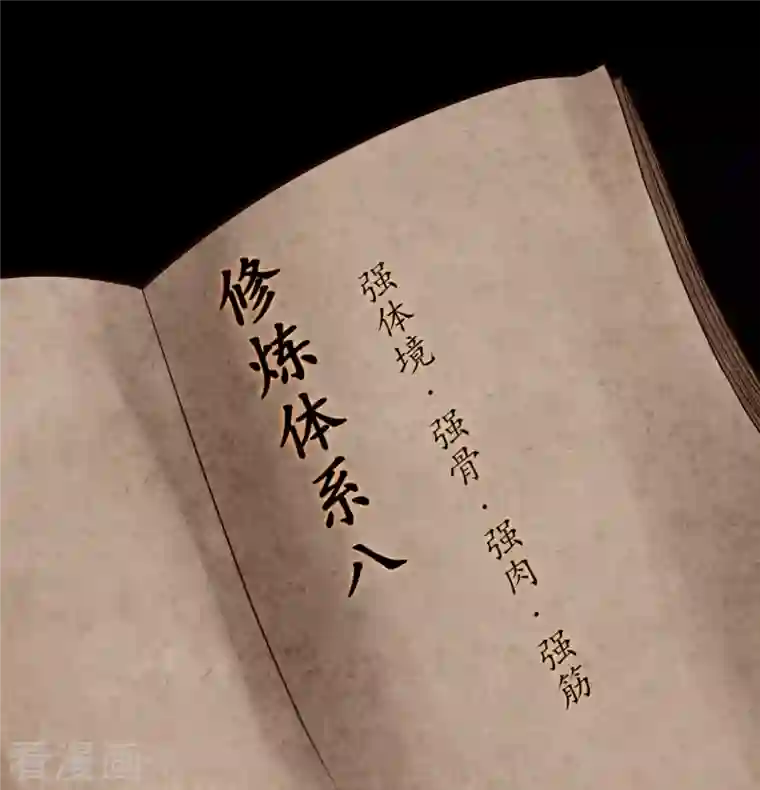 修炼体系八
强体境·强骨·强肉·强筋
看漫画